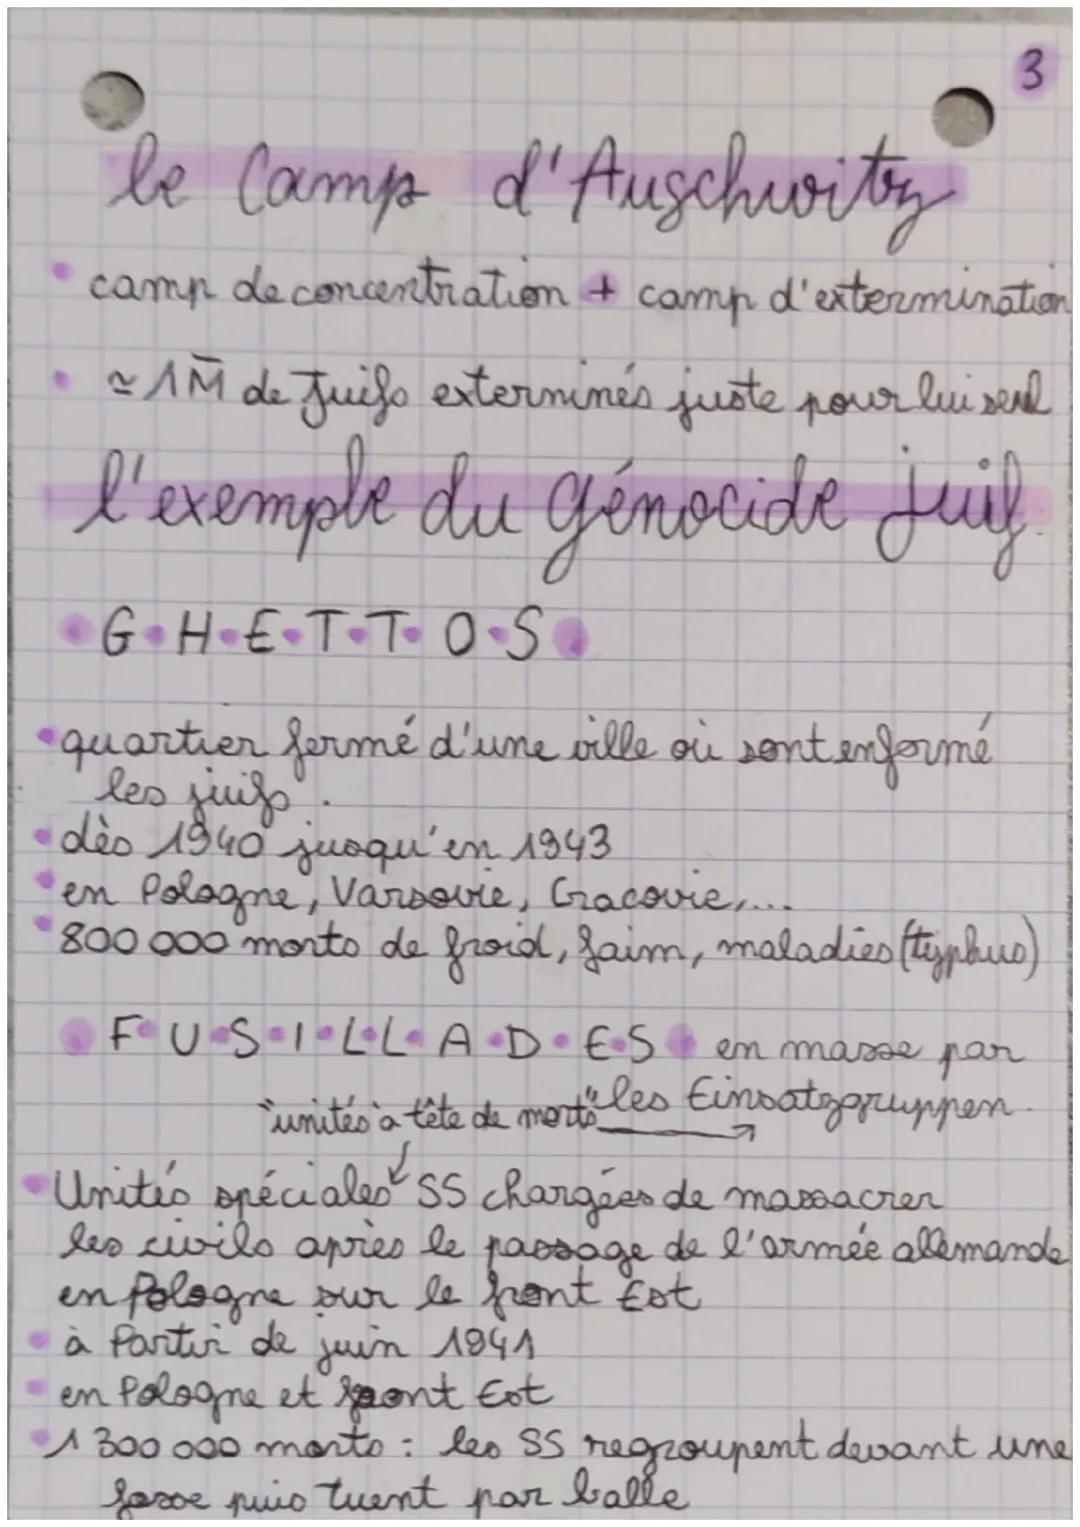 3
le Camp d'Auschwitz
• camp de concentration + camp d'extermination
• ≃ 1M de Juifs exterminés juste pour lui seul
l'exemple du génocide juif
• G • H • E • T • T • O • S •
• quartier fermé d'une ville où sont enfermé
les juifs.
• dès 1940 jusqu'en 1943
• en Pologne, Varsovie, Cracovie,...
• 800 000 morts de froid, faim, maladies (typhus)
• F • U • S • I • L • L • A • D • E • S • en masse par
"unités à tête de morts" les Einsatzgruppen.
• Unités spéciales SS chargées de massacrer
les civils après le passage de l'armée allemande
en Pologne sur le front Est
• à Partir de juin 1941
• en Pologne et front Est
• 1 300 000 morts : les SS regroupent devant une
fosse puis tuent par balle